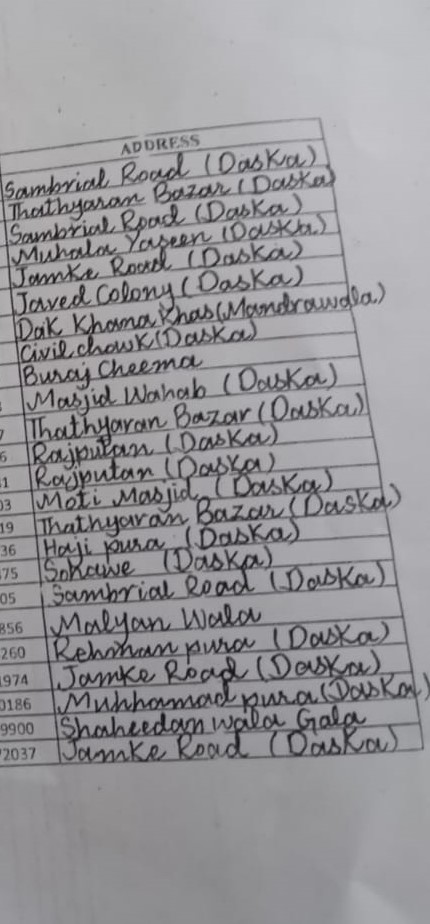 ADDRESS
Sambrial Road (Daska)
Thathyaran Bazar (Daska)
Sambrial Road (Daska)
Muhala Yaseen (Daska)
Jamke Road (Daska)
Javed Colony (Daska)
Dak Khana Khas (Mandrawala)
Civil chowk (Daska)
Buraj Cheema
Masjid Wahab (Daska)
7 Thathyaran Bazar (Daska)
6 Rajputan (Daska)
1 Rajputan (Daska)
03 Moti Masjid (Daska)
19 Thathyaran Bazar (Daska)
36 Haji pura (Daska)
75 Sokawe (Daska)
05 Sambrial Road (Daska)
856 Malyan Wala
260 Rehman pura (Daska)
1974 Jamke Road (Daska)
0186 Muhhamad pura (Daska)
9900 Shaheedan wala Gala
2037 Jamke Road (Daska)